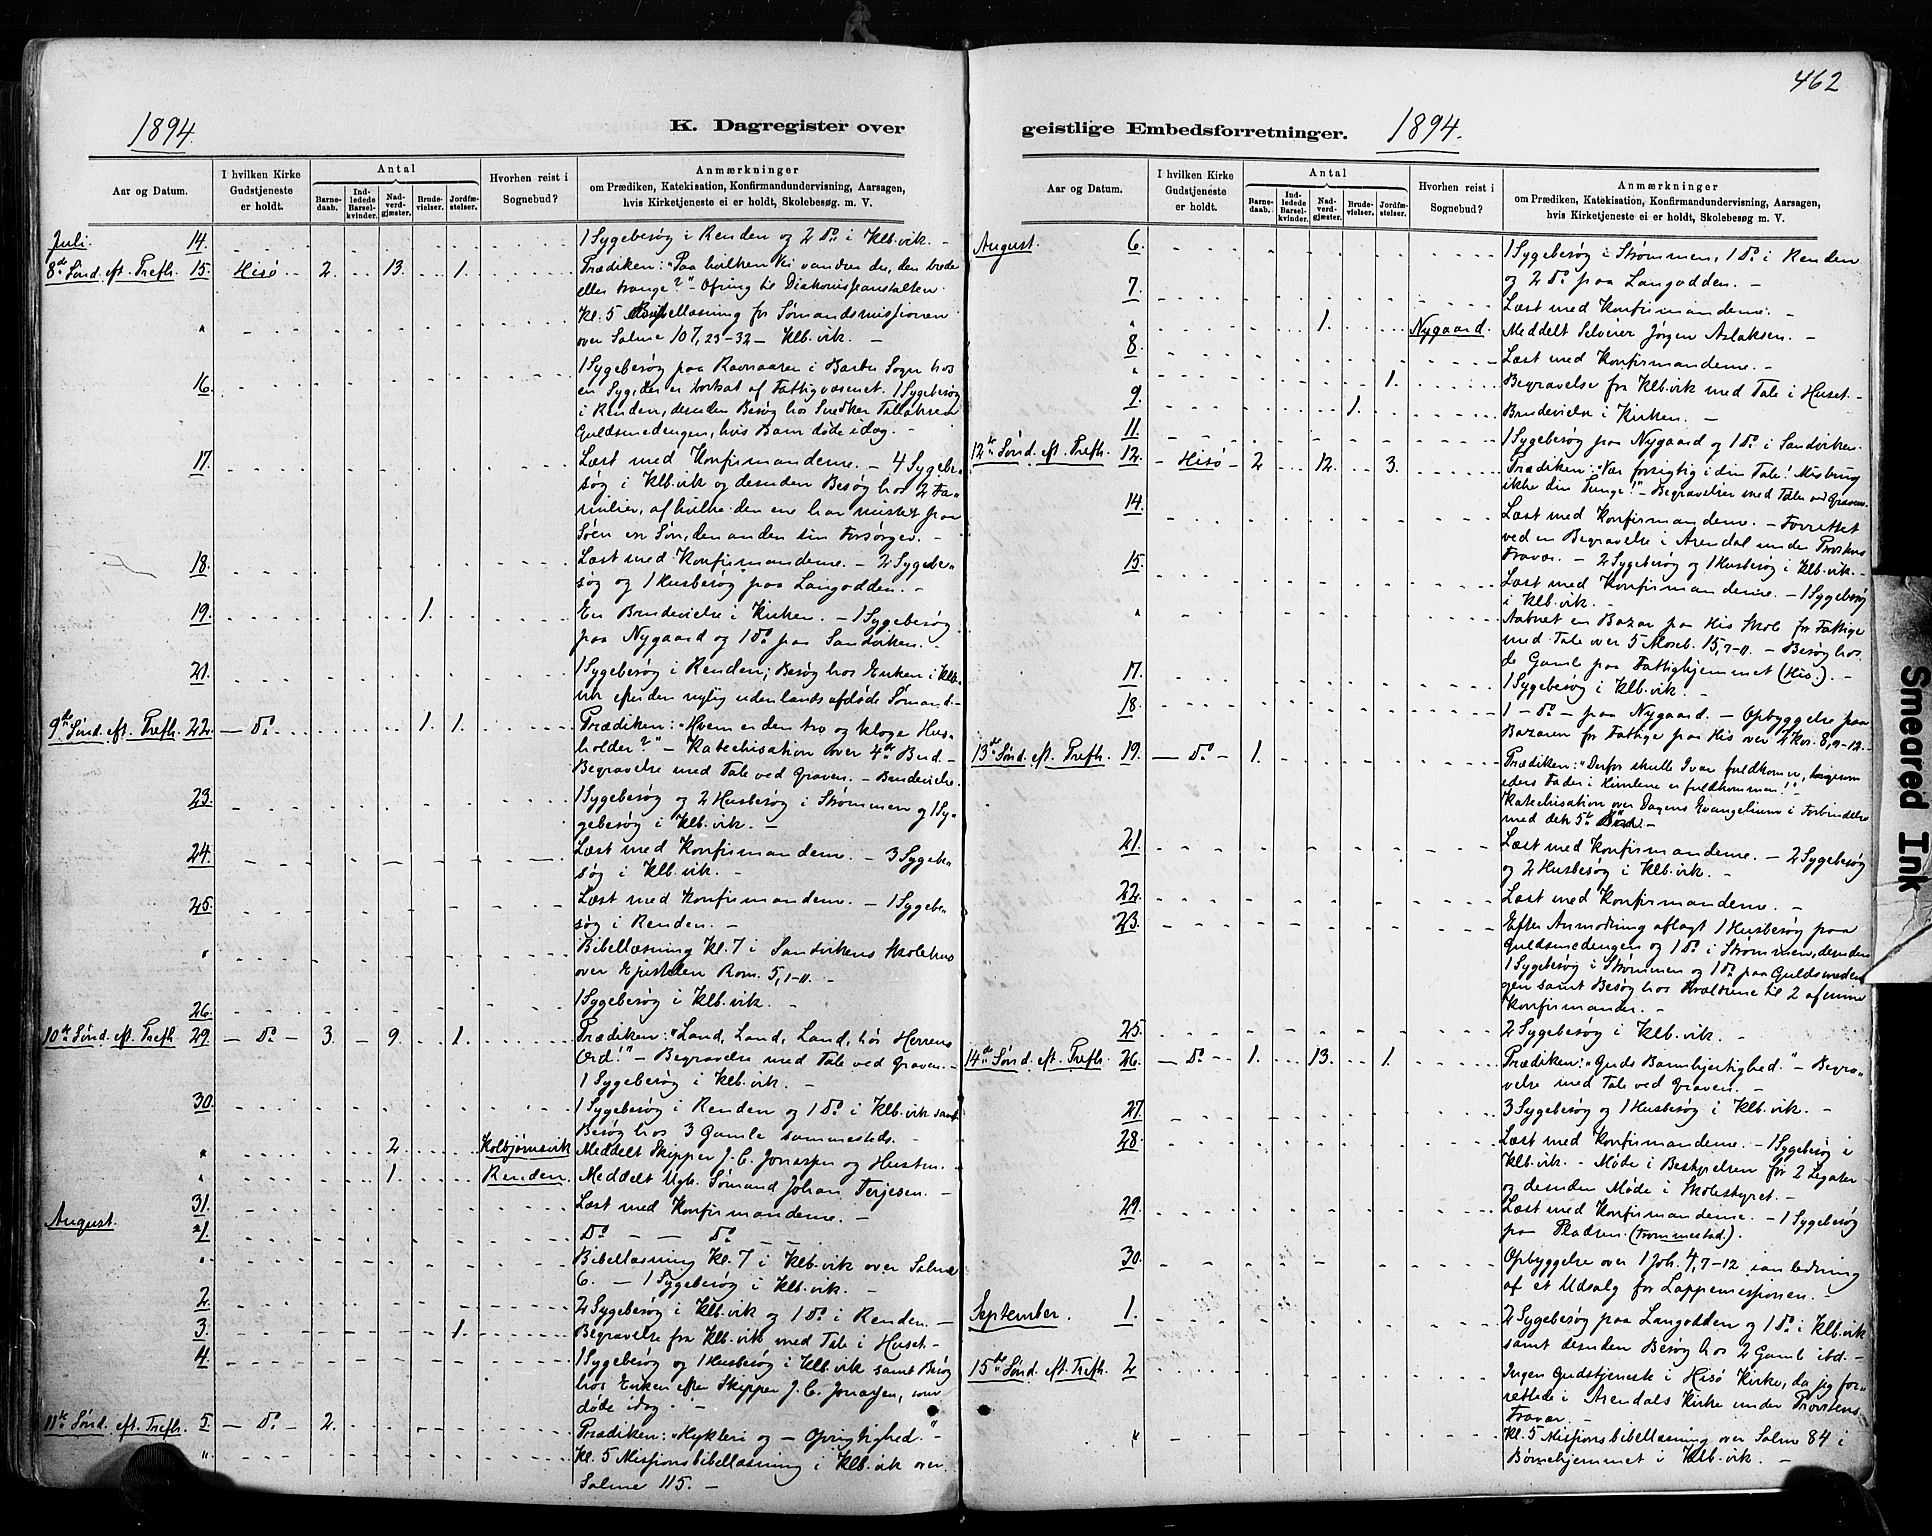 462
1894.
K. Dagregister over
Aar og Datum.
I hvilken Kirke Gudstjeneste er holdt.
Antal
Barnedaab.
Indledede Barselkvinder.
Nadverdgjæster.
Brudevielser.
Jordfæstelser.
Hvorhen reist i Sognebud?
Anmærkninger
om Prædiken, Katekisation, Konfirmandundervisning, Aarsagen,
hvis Kirketjeneste ei er holdt, Skolebesøg m. V.
Juli. 14. 1 Sygebesøg i Renden og 2 Do i Klb.vik. -
8de Sønd. eft. Trefh. 15. Hisö 2. 13. 1. Prædiken: "Paa hvilken Vei vandrer du, den brede
eller trange?" Ofring til Diakonisseanstalten
" Kl. 5 Bibellæsning for Sømandsmissionen
over Salme 107, 23-32 - Klb.vik. -
16. 1 Sygebesøg paa Ravnaasen i Barbu Sogn hos
en Syg, der er bortsat af Fattigvæsenet. 1 Sygebesøg
i Renden, desuden Besøg hos Snedker Tellaksen
Guldsmedengen, hvis Barn døde idag. -
17. Læst med Konfirmanderne. - 4 Sygebe-
søg i Klb.vik og desuden Besøg hos 2 Fa-
milier, af hvilke den ene har mistet paa
Søen en Søn, den anden sin Forsørger. -
18. Læst med Konfirmanderne. - 2 Sygebe-
søg og 1 Husbesøg paa Langodden. -
19. 1. En Brudevielse i Kirken. - 1 Sygebesøg
paa Nygaard og 1 Do paa Sandviken. -
21. 1 Sygebesøg i Renden; Besøg hos Enken i Klb.
vik efter den nylig udenlands afdøde Sømand. -
9de Sønd. eft. Trefh. 22. Do 1. 1. Prædiken: "Hvem er den tro og kloge Hus-
holder?" - Katechisation over 4de Bud. -
Begravelse med Tale ved Graven. - Brudevielse.
23. 1 Sygebesøg og 2 Husbesøg i Strømmen og 1 Sy-
gebesøg i Klb.vik. -
24. Læst med Konfirmanderne. - 3 Sygebe-
søg i Klb.vik. -
25. Læst med Konfirmanderne. - 1 Sygebe-
søg i Renden. -
" Bibellæsning Kl. 7 i Sandvikens Skolehus
over Epistelen Rom. 5, 1-11. -
26. 1 Sygebesøg i Klb.vik. -
10de Sønd. eft. Trefh. 29. Do 3. 9. 1. Prædiken: "Land, Land, Land, hør Herrens
Ord!" - Begravelse med Tale ved Graven. -
1 Sygebesøg i Klb.vik. -
30. 1 Sygebesøg i Renden og 1 Do i Klb.vik samt
Besøg hos 3 Gamle sammesteds. -
" 2. Kolbjørnsvik Meddelt Skipper J. C. Jonassen og Hustru. -
" 1. Renden. Meddelt Ugk. Sømand Johan Terjesen. -
31. Læst med Konfirmanderne. -
August. 1. Do - - Do - -
" Bibellæsning Kl. 7 i Klb.vik over Salme
6. - 1 Sygebesøg i Klb.vik. -
2. 2 Sygebesøg i Klb.vik og 1 Do i Renden. -
3. 1. Begravelse fra Klb.vik med Tale i Huset. -
4. 1 Sygebesøg og 1 Husbesøg i Klb.vik samt Besøg
hos Enken efter Skipper J. C. Jonassen, som
døde idag. -
11te Sønd. eft. Trefh. 5. Do 2. Prædiken: "Hykleri og - Oprigtighed."
" Kl. 5 Missionsbibellæsning i Klb.vik over
Salme 115. -
geistlige Embedsforretninger.
1894.
Aar og Datum.
I hvilken Kirke Gudstjeneste er holdt.
Antal
Barnedaab.
Indledede Barselkvinder.
Nadverdgjæster.
Brudevielser.
Jordfæstelser.
Hvorhen reist i Sognebud?
Anmærkninger
om Prædiken, Katekisation, Konfirmandundervisning, Aarsagen,
hvis Kirketjeneste ei er holdt, Skolebesøg m. V.
August. 6. 1 Sygebesøg i Strømmen, 1 Do i Renden
og 2 Do paa Langodden. -
7. Læst med Konfirmanderne. -
" 1. Nygaard. Meddelt Selveier Jørgen Aslaksen. -
8. Læst med Konfirmanderne. -
" 1. Begravelse fra Klb.vik med Tale i Huset. -
9. 1. Brudevielse i Kirken. -
11. 1 Sygebesøg paa Nygaard og 1 Do i Sandviken.
12te Sønd. eft. Trefh. 12. Hisö 2 12. 3. Prædiken: "Vær forsigtig i din Tale! Misbrug
ikke din Tunge!" - Begravelser med Tale ved Graven.
14. Læst med Konfirmanderne. - Forrettet
ved en Begravelse i Arendal under Provstens
Fravær. - 2 Sygebesøg og 1 Husbesøg i Klb.vik. -
15. Læst med Konfirmanderne. - 1 Sygebesøg
i Klb.vik. -
" Aabnet en Bazar paa His Skole for Fattige
med Tale over 5 Moseb. 15, 7-11. - Besøg hos
de Gamle paa Fattighjemmet (His.). -
17. 1 Sygebesøg i Klb.vik. -
18. 1 - Do - paa Nygaard. - Opbyggelse paa
Bazaren for Fattige paa His over 2 Kor. 8, 9-12.
13de Sønd. eft. Trefh. 19. Do 1. Prædiken: "Derfor skulle I vær fuldkomne, ligesom
eders Fader i Himlene er fuldkommen!"
Katechisation over Dagens Evangelium i Forbindelse
med det 5te Bud. -
21. Læst med Konfirmanderne. - 2 Sygebesøg
og 2 Husbesøg i Klb.vik. -
22. Læst med Konfirmanderne. -
23. Efter Anmodning aflagt 1 Husbesøg paa
Guldsmedengen og 1 Do i Strømmen, desuden
1 Sygebesøg i Strømmen og 1 Do paa Guldsmeden-
gen samt Besøg hos Forældrene til 2 af mine
Konfirmander. -
25. 2 Sygebesøg i Klb.vik. -
14de Sønd. eft. Trefh. 26. Do 1. 13. 1. Prædiken: "Guds Barmhjertighed." - Begra-
velse med Tale ved Graven. -
27. 3 Sygebesøg og 1 Husbesøg i Klb.vik. -
28. Læst med Konfirmanderne. - 1 Sygebesøg i
Klb.vik. - Møde i Bestyrelsen for 2 Legater
og desuden Møde i Skolestyret. -
29. Læst med Konfirmanderne. - 1 Sygebesøg
paa Pladsen. (Trommestad). -
30. Opbyggelse over 1 Joh. 4, 7-12 i anledning
af et Udsalg for Lappemissionen. -
September. 1. 2 Sygebesøg paa Langodden og 1 Do i Klb.vik
samt desuden Besøg hos 2 Gamle ibd. -
15de Sønd. eft. Trefh. 2. Ingen Gudstjeneste i Hisö Kirke, da jeg for-
rettede i Arendals Kirke under Provstens
Fravær. -
" Kl. 5 Missionsbibellæsning over Salme 84 i
Børnehjemmet i Klb.vik. -
Smeared Ink